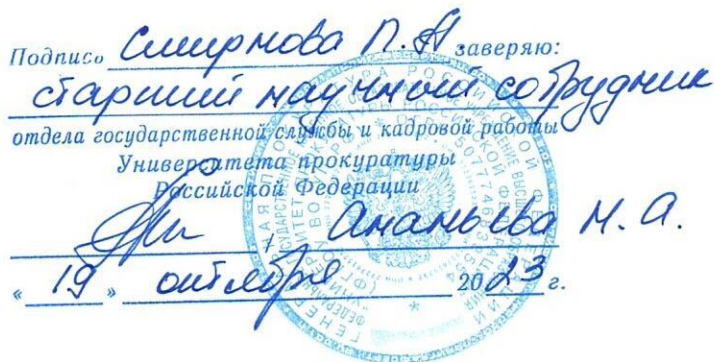 Подпись Смирнова П. А заверяю:
старший научный сотрудник
отдела государственной службы и кадровой работы
Университета прокуратуры
Российской Федерации
Ананьева Н. А.
« 19 » октября 2023 г.